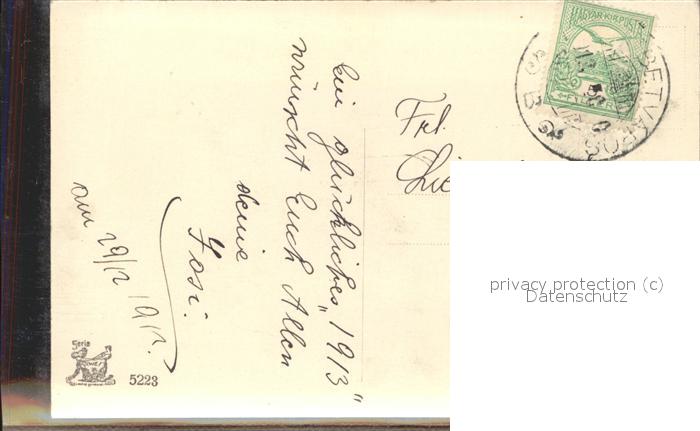 Ein glückliches „1913"
wünscht Euch Allen
deine
Josi.
am 29/12 1912.
Frl.
MAGYAR KIR. POSTA
FILLÉR
SETVÁROS
B
Serie
5223
privacy protection (c)
Datenschutz